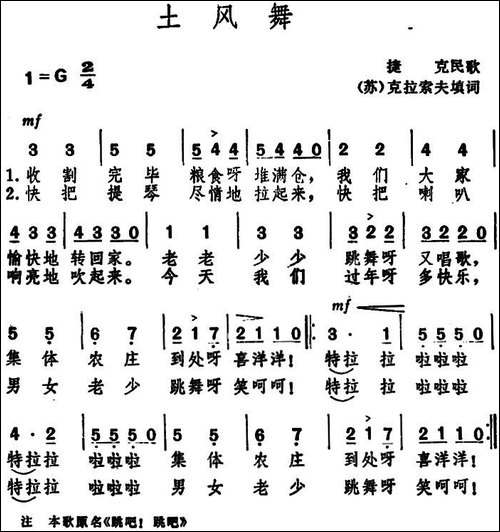 土风舞
1=G 2/4
捷 克民歌
(苏)克拉索夫填词
mf
3 3 | 5 5 | 5 4 4 | 5 4 4 0 | 2 2 | 4 4 |
1. 收 割 完 毕 粮食呀 堆满仓， 我 们 大 家
2. 快 把 提 琴 尽情地 拉起来， 快 把 喇 叭
4 3 3 | 4 3 3 0 | 1 1 | 3 3 | 3 2 2 | 3 2 2 0 |
愉快地 转回家。 老 老 少 少 跳舞呀 又唱歌，
响亮地 吹起来。 今 天 我 们 过年呀 多快乐，
mf
5 5 | 6 7 | 2 1 7 | 2 1 1 0 :| 3 · 1 | 5 5 5 0 |
集 体 农 庄 到处呀 喜洋洋！ 特拉 拉 啦啦啦
男 女 老 少 跳舞呀 笑呵呵！ 特拉 拉 啦啦啦
4 · 2 | 5 5 5 0 | 5 5 | 6 7 | 2 1 7 | 2 1 1 0 :|
特拉拉 啦啦啦 集 体 农 庄 到处呀 喜洋洋！
特拉拉 啦啦啦 男 女 老 少 跳舞呀 笑呵呵！
注 本歌原名《跳吧！跳吧》